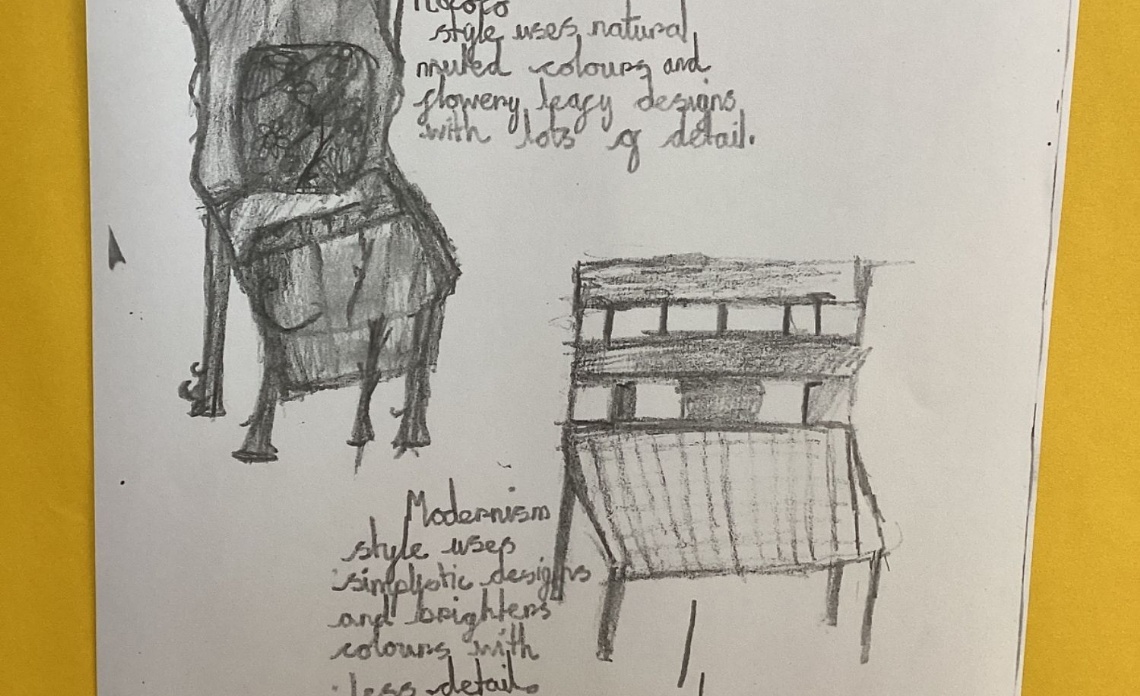 Rococo
style uses natural
muted colours and
flowery leafy designs
with lots of detail.
Modernism
style uses
simplistic designs
and brighters
colours with
less detail.